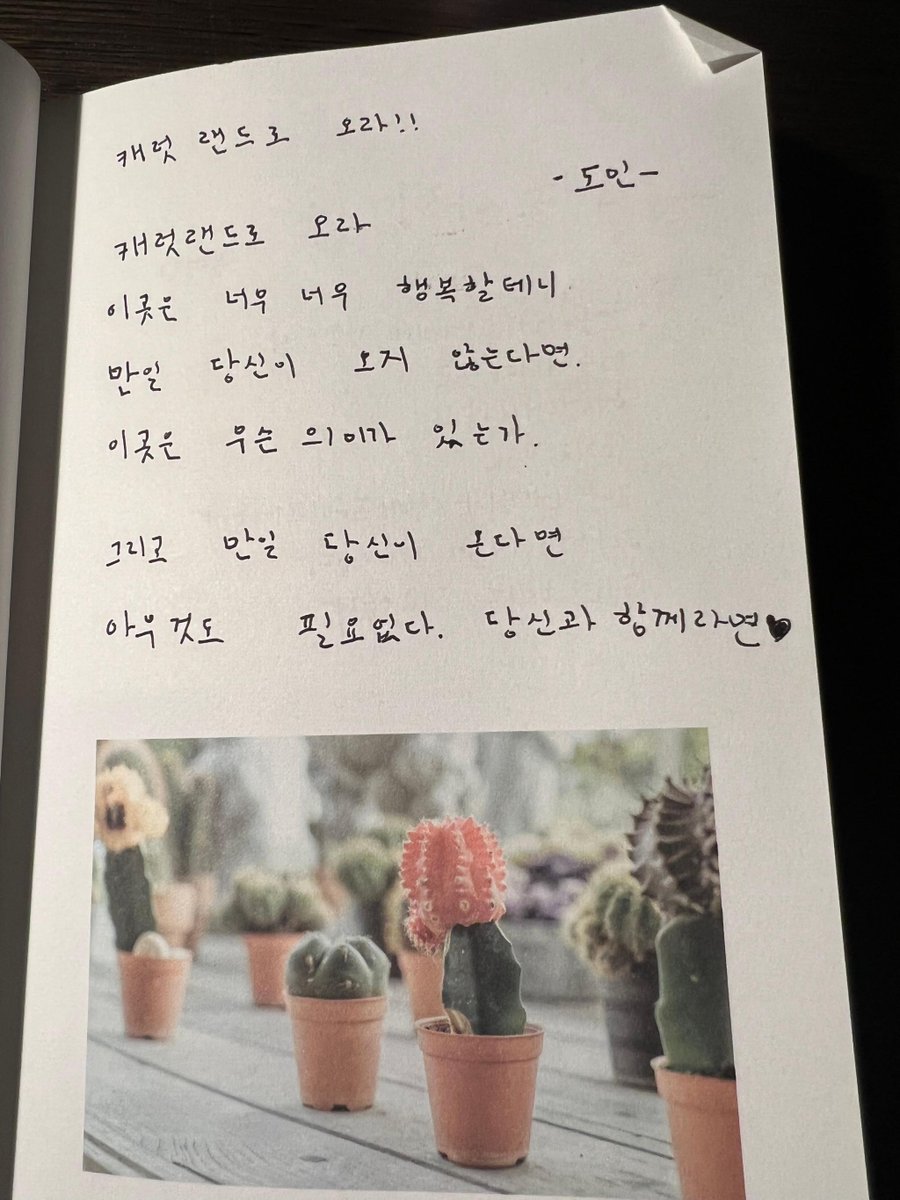 캐럿 랜드로 오라!!
-도인-
캐럿랜드로 오라
이곳은 너무 너무 행복할테니
만일 당신이 오지 않는다면.
이곳은 무슨 의미가 있는가.
그리고 만일 당신이 온다면
아무것도 필요없다. 당신과 함께라면♥